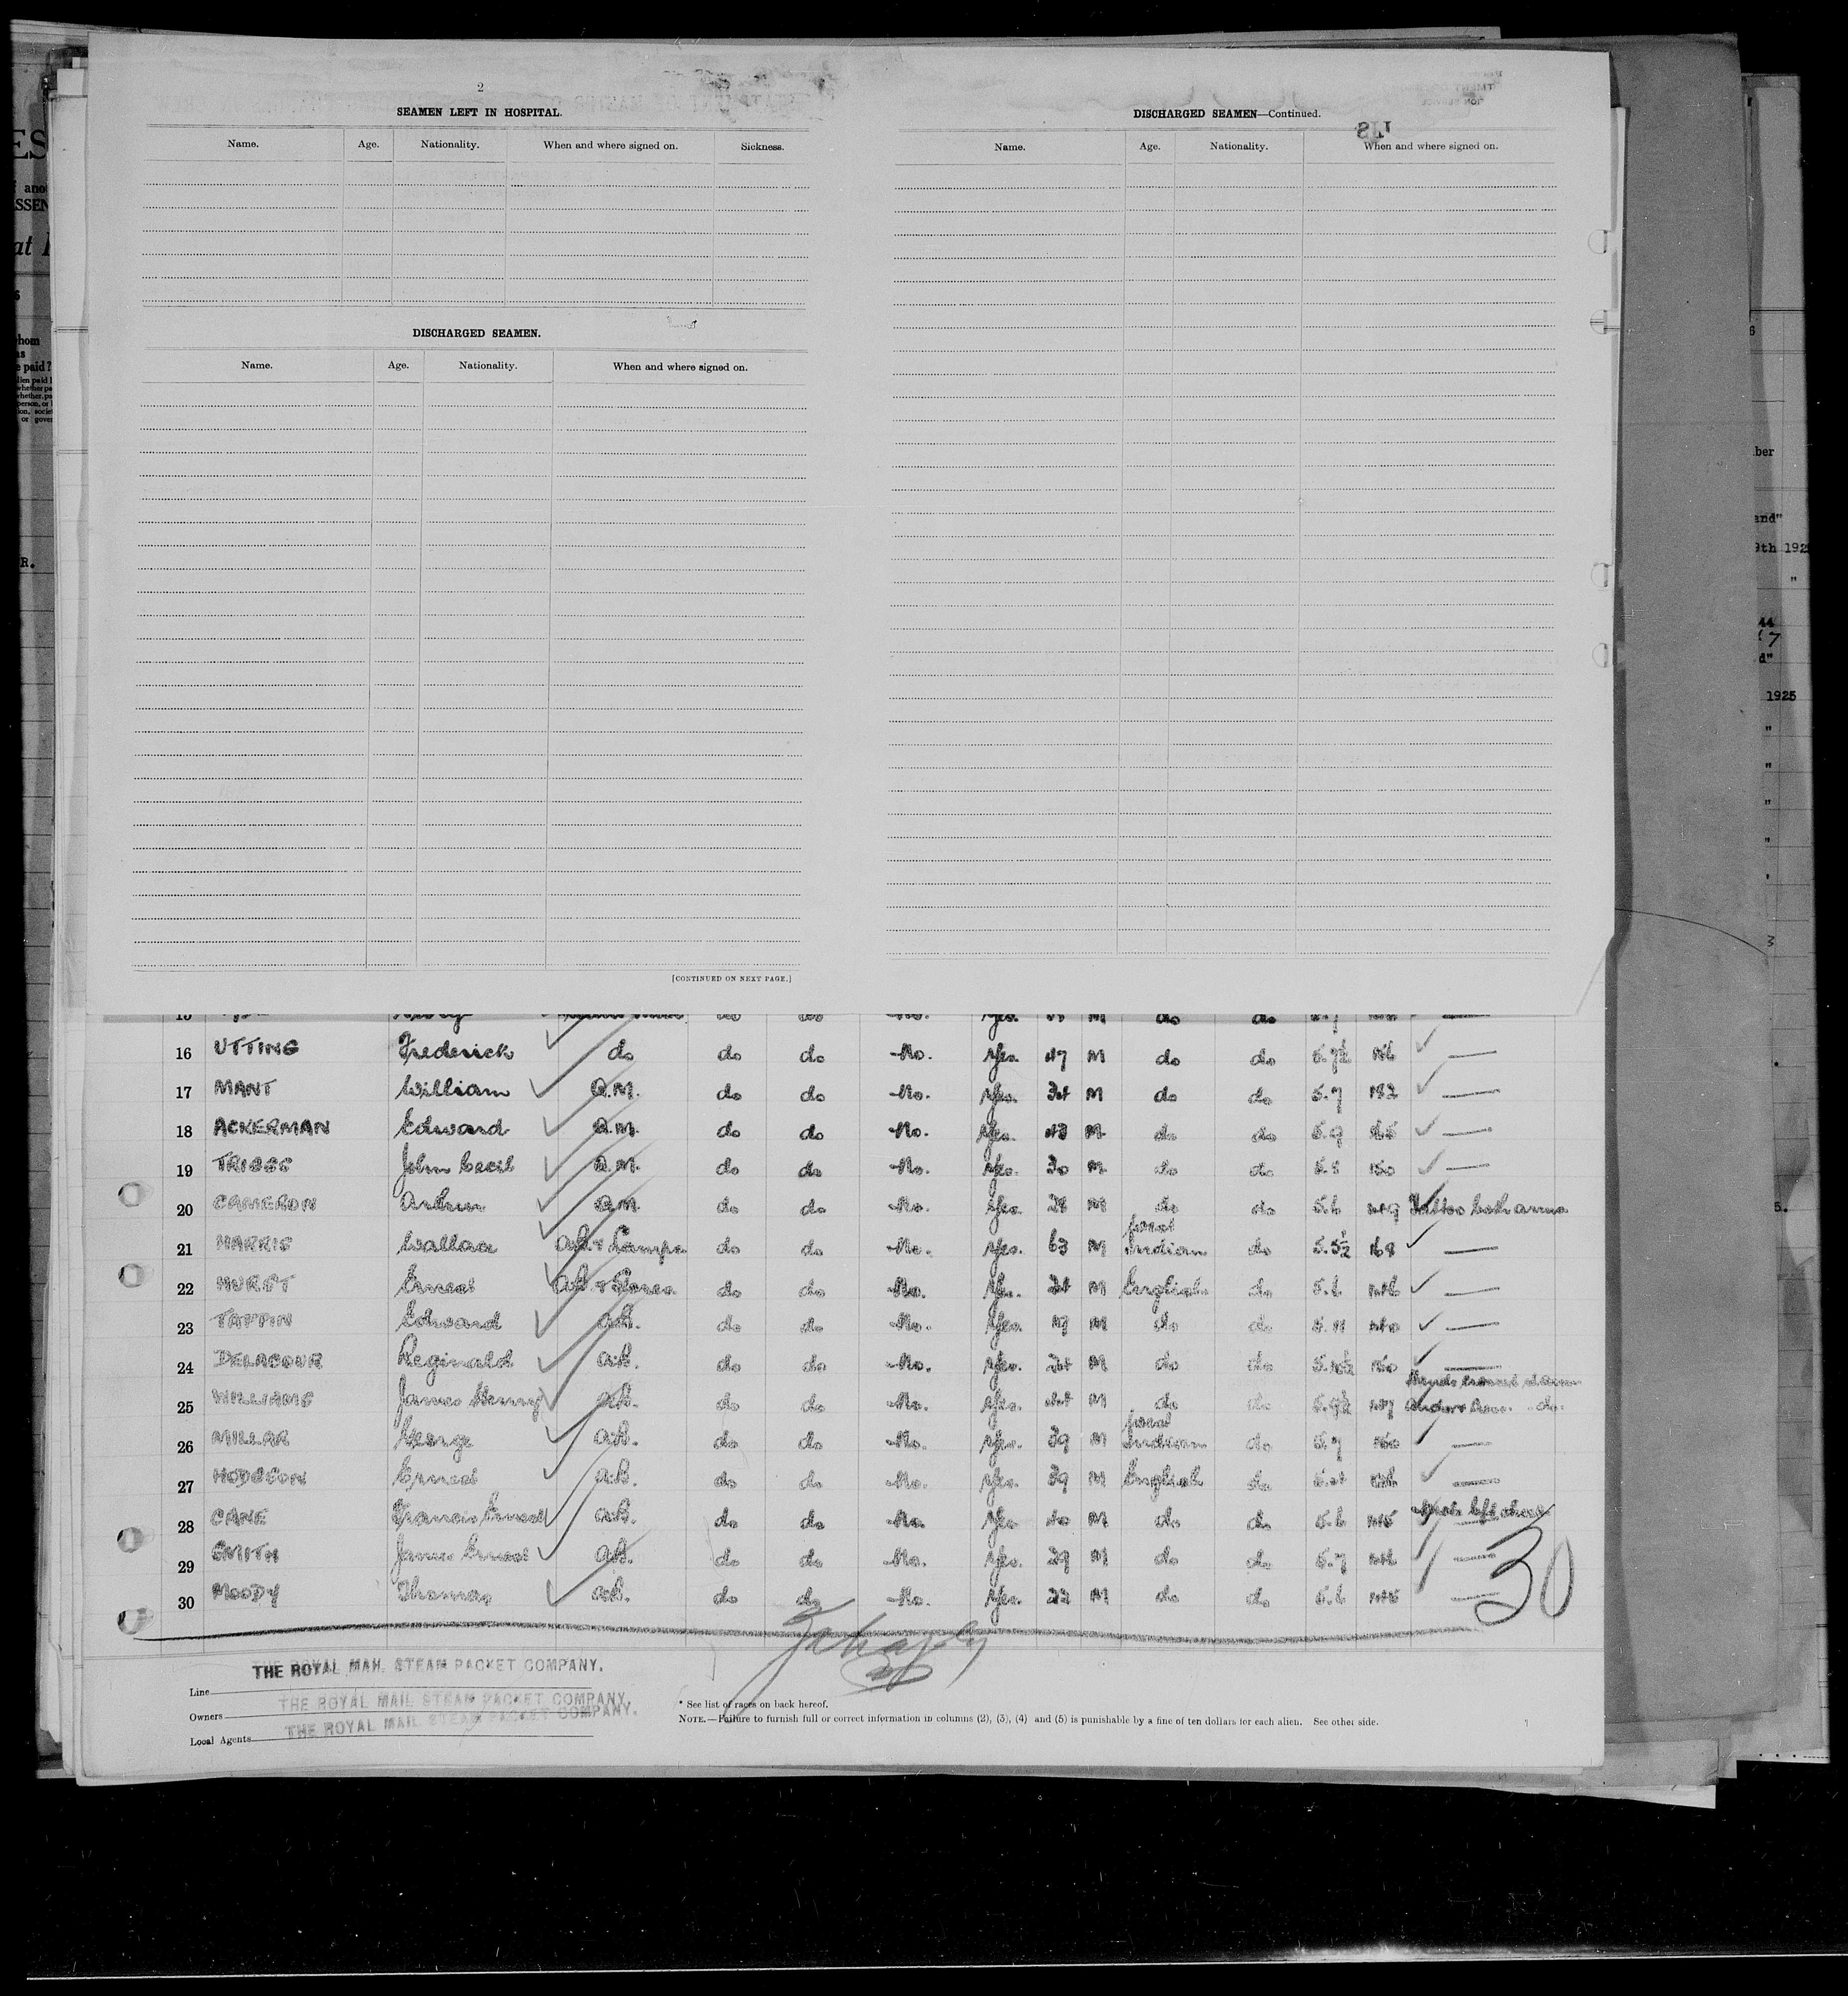 2
SEAMEN LEFT IN HOSPITAL.
Name. Age. Nationality. When and where signed on. Sickness.
DISCHARGED SEAMEN.
Name. Age. Nationality. When and where signed on.
[CONTINUED ON NEXT PAGE.]
DISCHARGED SEAMEN—Continued.
Name. Age. Nationality. When and where signed on.
15 do do No. Yes. M do do
16 UTTING Frederick do do do No. Yes. 47 M do do 5.7½
17 MANT William Q.M. do do No. Yes. 34 M do do 5.7 182
18 ACKERMAN Edward Q.M. do do No. Yes. 43 M do do 5.9
19 TRIGGS John Cecil Q.M. do do No. Yes. 30 M do do 150
20 CAMERON Arthur Q.M. do do No. Yes. 28 M do do 5.6 149 Tattoo both arms
21 HARRIS Wallace A.B. & Lamps do do No. Yes. 63 M West Indian do 5.5½ 168
22 HURST Ernest A.B. & Stores do do No. Yes. 24 M English do 5.6 146
23 TAPPIN Edward A.B. do do No. Yes. 19 M do do 5.11 140
24 DELACOUR Reginald A.B. do do No. Yes. 24 M do do 5.10½ 150
25 WILLIAMS James Henry A.B. do do No. Yes. 44 M do do 5.9½ 147
26 MILLAR George A.B. do do No. Yes. 39 M West Indian do 5.7 160
27 HODGSON Ernest A.B. do do No. Yes. 39 M English do 5.4
28 CANE Francis Ernest A.B. do do No. Yes. 40 M do do 5.6 145 left cheek
29 SMITH James Ernest A.B. do do No. Yes. 29 M do do 5.7
30 MOODY Thomas A.B. do do No. Yes. 22 M do do 5.6 145
30
Line THE ROYAL MAIL STEAM PACKET COMPANY.
Owners THE ROYAL MAIL STEAM PACKET COMPANY.
Local Agents THE ROYAL MAIL STEAM PACKET COMPANY.
* See list of races on back hereof.
NOTE.—Failure to furnish full or correct information in columns (2), (3), (4) and (5) is punishable by a fine of ten dollars for each alien. See other side.